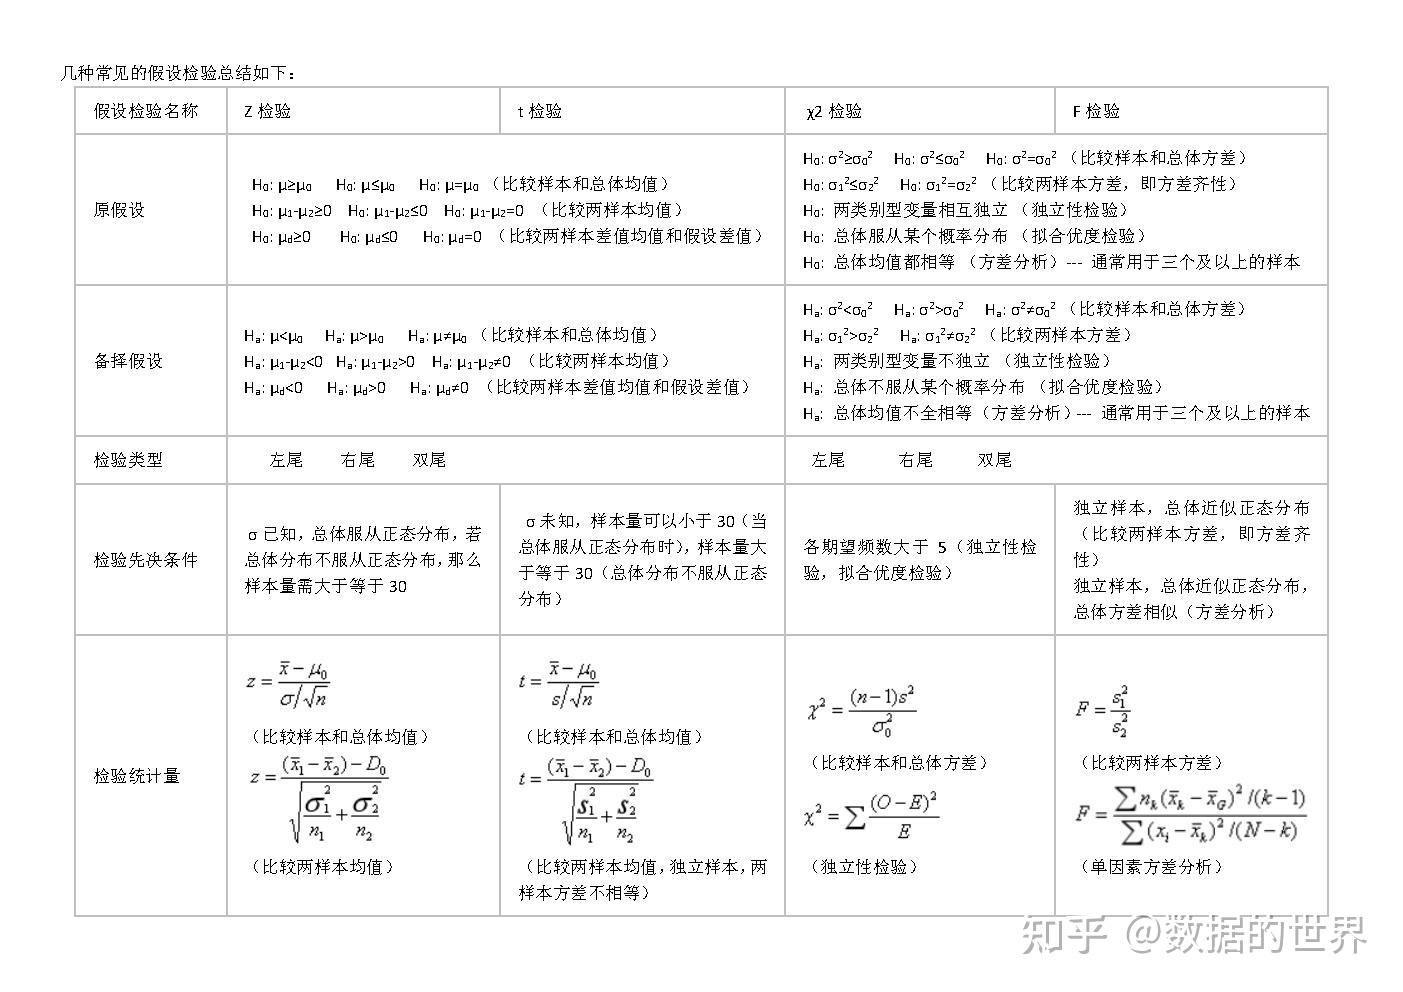 几种常见的假设检验总结如下：
假设检验名称 Z 检验 t 检验 χ2 检验 F 检验
原假设
H₀: μ≥μ₀ H₀: μ≤μ₀ H₀: μ=μ₀ （比较样本和总体均值）
H₀: μ₁-μ₂≥0 H₀: μ₁-μ₂≤0 H₀: μ₁-μ₂=0 （比较两样本均值）
H₀: μd≥0 H₀: μd≤0 H₀: μd=0 （比较两样本差值均值和假设差值）
H₀: σ²≥σ₀² H₀: σ²≤σ₀² H₀: σ²=σ₀² （比较样本和总体方差）
H₀: σ₁²≤σ₂² H₀: σ₁²=σ₂² （比较两样本方差，即方差齐性）
H₀: 两类别型变量相互独立 （独立性检验）
H₀: 总体服从某个概率分布 （拟合优度检验）
H₀: 总体均值都相等 （方差分析）--- 通常用于三个及以上的样本
备择假设
Hₐ: μ<μ₀ Hₐ: μ>μ₀ Hₐ: μ≠μ₀ （比较样本和总体均值）
Hₐ: μ₁-μ₂<0 Hₐ: μ₁-μ₂>0 Hₐ: μ₁-μ₂≠0 （比较两样本均值）
Hₐ: μd<0 Hₐ: μd>0 Hₐ: μd≠0 （比较两样本差值均值和假设差值）
Hₐ: σ²<σ₀² Hₐ: σ²>σ₀² Hₐ: σ²≠σ₀² （比较样本和总体方差）
Hₐ: σ₁²>σ₂² Hₐ: σ₁²≠σ₂² （比较两样本方差）
Hₐ: 两类别型变量不独立 （独立性检验）
Hₐ: 总体不服从某个概率分布 （拟合优度检验）
Hₐ: 总体均值不全相等（方差分析）--- 通常用于三个及以上的样本
检验类型 左尾 右尾 双尾 左尾 右尾 双尾
检验先决条件
σ 已知，总体服从正态分布，若
总体分布不服从正态分布，那么
样本量需大于等于 30
σ 未知，样本量可以小于 30（当
总体服从正态分布时），样本量大
于等于 30（总体分布不服从正态
分布）
各期望频数大于 5（独立性检
验，拟合优度检验）
独立样本，总体近似正态分布
（比较两样本方差，即方差齐
性）
独立样本，总体近似正态分布，
总体方差相似（方差分析）
检验统计量
z = (x̄ − μ₀) / (σ/√n)
（比较样本和总体均值）
z = ((x̄₁ − x̄₂) − D₀) / √(σ₁²/n₁ + σ₂²/n₂)
（比较两样本均值）
t = (x̄ − μ₀) / (s/√n)
（比较样本和总体均值）
t = ((x̄₁ − x̄₂) − D₀) / √(s₁²/n₁ + s₂²/n₂)
（比较两样本均值，独立样本，两
样本方差不相等）
χ² = (n−1)s² / σ₀²
（比较样本和总体方差）
χ² = ∑ (O − E)² / E
（独立性检验）
F = s₁² / s₂²
（比较两样本方差）
F = ∑ nₖ(x̄ₖ − x̄G)² /(k−1) / ∑ (xᵢ − x̄ₖ)² /(N−k)
（单因素方差分析）
知乎 @数据的世界